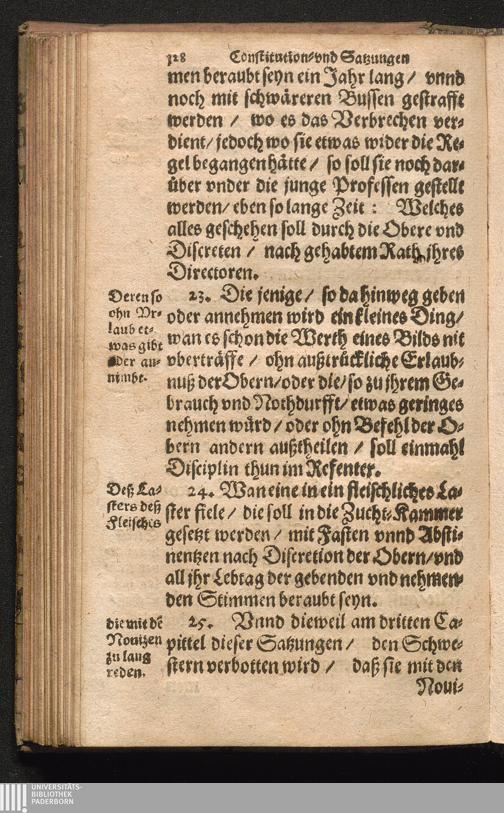 328 Constitution- vnd Satzungen
men beraubt seyn ein Jahr lang / vnnd
noch mit schwäreren Bussen gestrafft
werden / wo es das Verbrechen ver-
dient / jedoch wo sie etwas wider die Re-
gel begangen hätte / so soll sie noch dar-
über vnder die junge Professen gestellt
werden / eben so lange Zeit : Welches
alles geschehen soll durch die Obere vnd
Discreten / nach gehabtem Rath jhres
Directoren.
Deren so
ohn Vr-
laub et-
was gibt
oder an-
nimbt.
23. Die jenige / so da hinweg geben
oder annehmen wird ein kleines Ding /
wan es schon die Werth eines Bilds nit
vberträffe / ohn außtrückliche Erlaub-
nuß der Obern / oder die / so zu jhrem Ge-
brauch vnd Nothdurfft / etwas geringes
nehmen würd / oder ohn Befehl der O-
bern andern außtheilen / soll einmahl
Disciplin thun im Refenter.
Deß La-
sters deß
Fleisches
24. Wan eine in ein fleischliches La-
ster fiele / die soll in die Zucht-Kammer
gesetzt werden / mit Fasten vnnd Absti-
nentzen nach Discretion der Obern / vnd
all jhr Lebtag der gebenden vnd nehmen-
den Stimmen beraubt seyn.
die mit dē
Nouitzen
zu lang
reden.
25. Vnnd dieweil am dritten Ca-
pittel dieser Satzungen / den Schwe-
stern verbotten wird / daß sie mit den
Noui-
UNIVERSITÄTS-
BIBLIOTHEK
PADERBORN